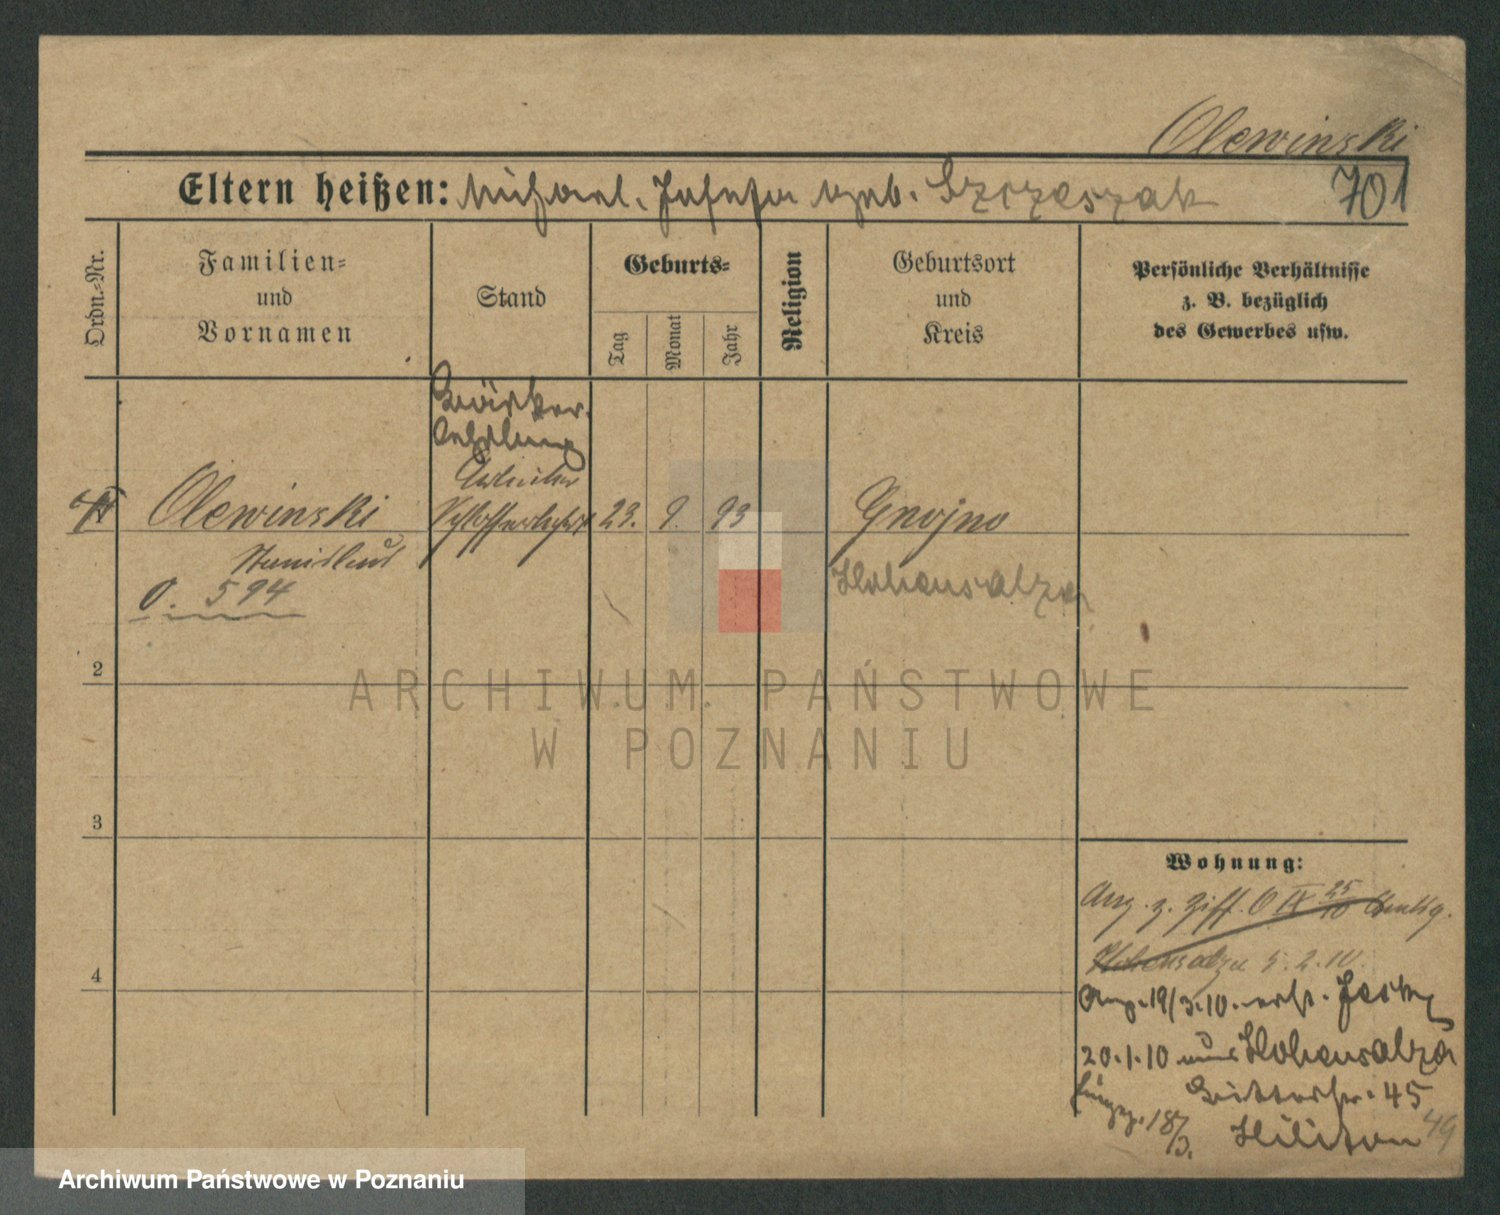 Olewinski
Eltern heißen: Michael. Josefa geb. Szczeszak 701
Ordn.-Nr.
Familien-
und
Vornamen
Stand
Geburts-
Tag
Monat
Jahr
Religion
Geburtsort
und
Kreis
Persönliche Verhältnisse
z. B. bezüglich
des Gewerbes usw.
Bäcker-
lehrling
Arbeiter
Olewinski Schlosserlehrl 23. 9. 93 Gnojno
Stanislaus
O. 594
Hohensalza
2
3
4
Wohnung:
Ang. z. Ziff. O IX 25/10
Hohensalza 5.2.10.
Ang. 19/3.10.
20.1.10 aus Hohensalza
Ritterstr. 45
18/3.
49
ARCHIWUM PAŃSTWOWE
W POZNANIU
Archiwum Państwowe w Poznaniu